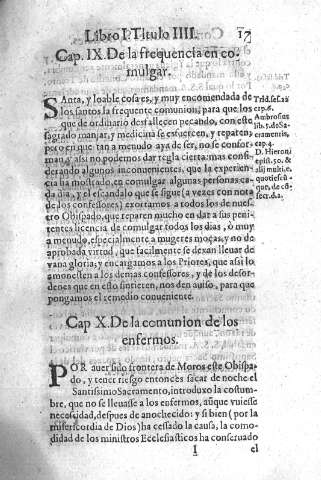 Libro I. Titulo IIII. 17
Cap. IX. De la frequencia en co-
mulgar.
SAnta, y loable cosa es, y muy encomendada de
los santos la frequente comunion, para que los
que de ordinario desfallecen pecando, con este
sagrado manjar, y medicina se esfuercen, y reparen;
pero en que tan a menudo aya de ser, no se confor-
man, y assi no podemos dar regla cierta: mas consi-
derando algunos inconuenientes, que la experien-
cia ha mostrado, en comulgar algunas personas ca-
da dia, y el escandalo que se sigue (a vezes con nota
de los confessores) exortamos a todos los de nuestro
Obispado, que reparen mucho en dar a sus peni-
tentes licencia de comulgar todos los dias, ò muy
a menudo, especialmente a mugeres moças, y no de
aprobada virtud, que facilmente se dexan lleuar de
vana gloria; y encargamos a los Priores, que assi lo
amonesten a los demas confessores, y de los desor-
denes que en esto sintieren, nos den auiso, para que
pongamos el remedio conueniente.
Trid. ses. 22
cap. 6.
Ambrosius
lib. 5. de Sa-
cramentis,
cap. 4.
D. Hieroni
epist. 50. &
Cap X. De la comunion de los
enfermos.
POR auer sido frontera de Moros este Obispa-
do, y tener riesgo entonces sacar de noche el
Santissimo Sacramento, introduxo la costum-
bre, que no se lleuasse a los enfermos, aũque vuiesse
necessidad, despues de anochecido: y si bien (por la
misericordia de Dios) ha cessado la causa, la como-
didad de los ministros Ecclesiasticos ha conseruado
I el